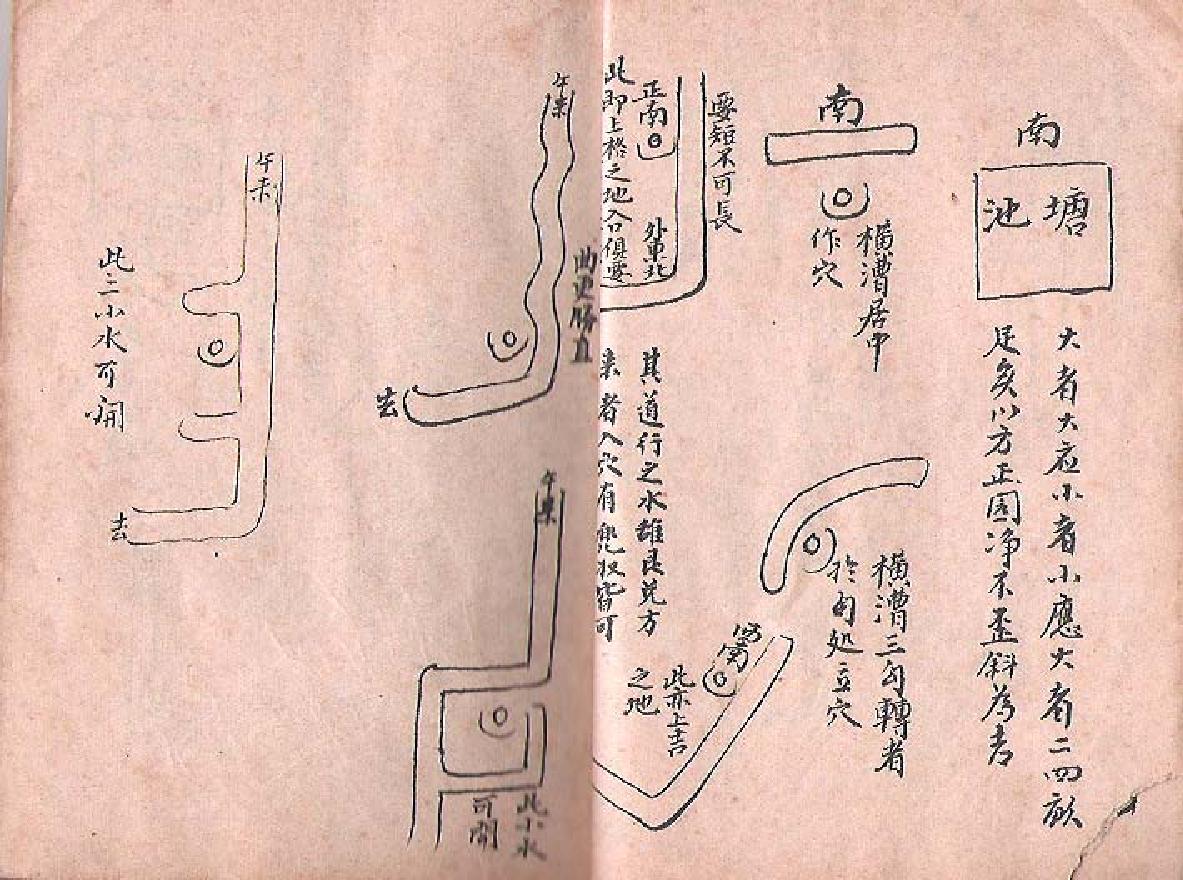 南
塘
池
大者大应小者小應大者二四畝
足矣以方正圆净不歪斜為吉
南
橫漕居中
作穴
橫漕三勾轉者
於勾処立穴
要短不可長
正南
外東北
此即上格之地合俱要
其道行之水雖艮兑方
来者入穴有兜收皆可
西南
此亦上吉
之地
午来
曲更勝直
去
午来
此小水
可開
午来
去
此二小水可開